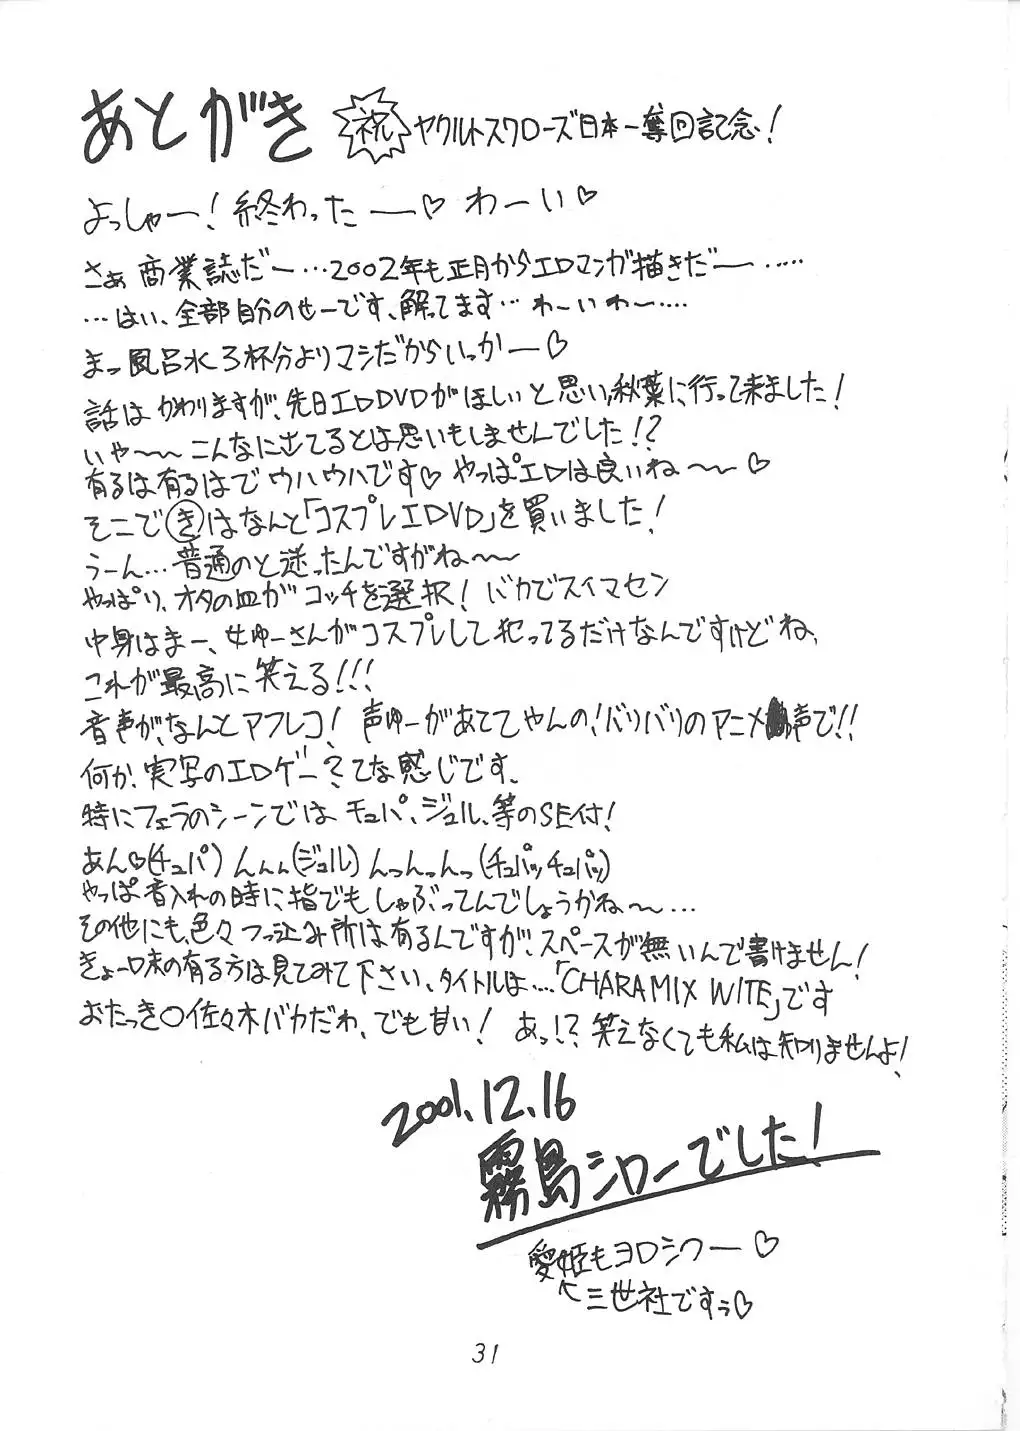 あとがき 祝 ヤクルトスワローズ日本一奪回記念!
よっしゃー!終わったー♡ わーい♡
さぁ商業誌だー…2002年も正月からエロマンガ描きだー……
…はい、全部自分のせーです、解ってます…わーいわー……
まっ風呂水3杯分よりマシだからいっかー♡
話はかわりますが、先日エロDVDがほしいと思い、秋葉に行って来ました!
いや〜〜こんなに出てるとは思いもしませんでした!?
有るは有るはでウハウハです♡やっぱエロは良いね〜〜♡
そこできはなんと「コスプレエロDVD」を買いました!
うーん…普通のと迷ったんですがね〜〜
やっぱり、オタの血がコッチを選択!バカでスイマセン
中身はまー、女ゆーさんがコスプレして犯ってるだけなんですけどね、
これが最高に笑える!!!
音声が、なんとアフレコ!声ゆーがあててやんの!バリバリのアニメ声で!!
何か、実写のエロゲー?てな感じです、
特にフェラのシーンでは チュパ、ジュル、等のSE付!
あん♡(チュパ)んんん(ジュル)んっんっんっ(チュパッチュパッ)
やっぱ音入れの時に指でもしゃぶってんでしょうかね〜…
その他にも、色々つっ込み所は有るんですが、スペースが無いんで書けません!
きょー味の有る方は見てみて下さい、タイトルは…「CHARAMIX WITE」です
おたっき○佐々木バカだわ、でも甘い! あっ!?笑えなくても私は知りませんよ!
2001.12.16
霧島シローでした!
愛姫もヨロシクー♡
↖三世社ですぅ♡
31